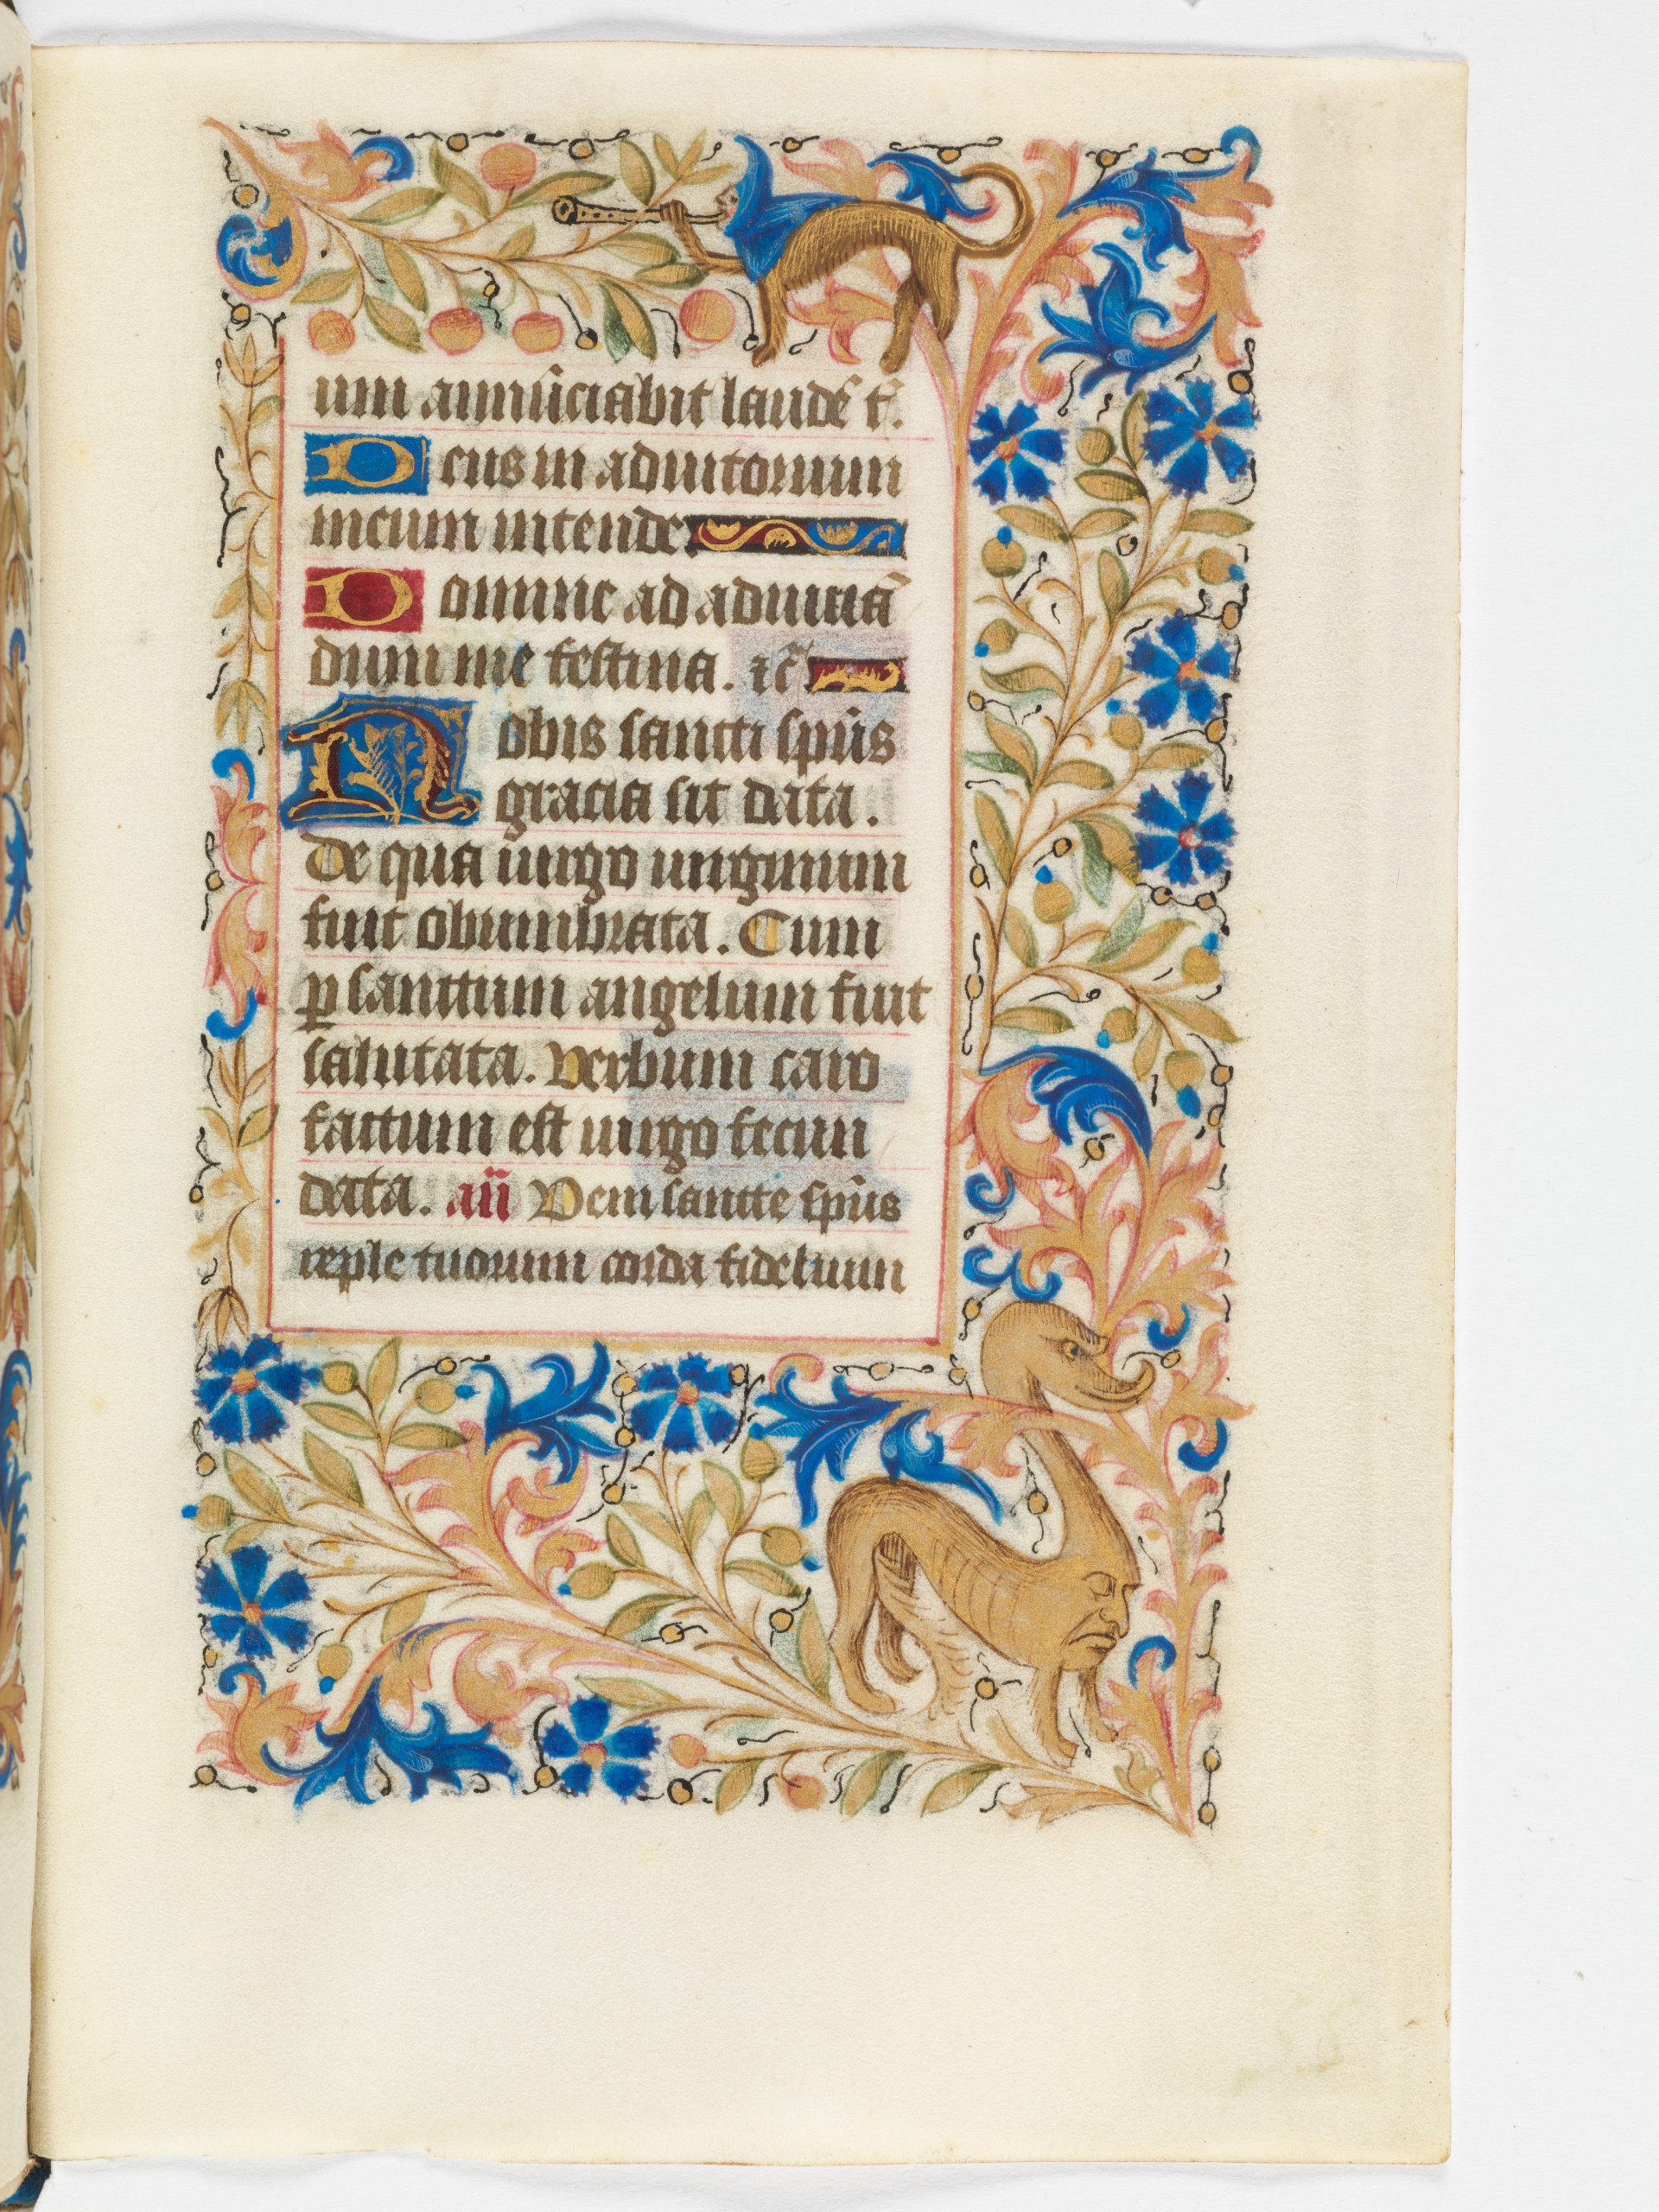 um annũciabit laudẽ t̃.
Deus in adiutorium
meum intende.
Domine ad adiuuã
dum me festina. ⁊c̃
Nobis sancti sp̃us
gracia sit data.
De qua uirgo uirginum
fuit obumbrata. Cum
ꝑ sanctum angelum fuit
salutata. Verbum caro
factum est uirgo fecun
data. añ Veni sancte sp̃us
reple tuorum corda fidelium